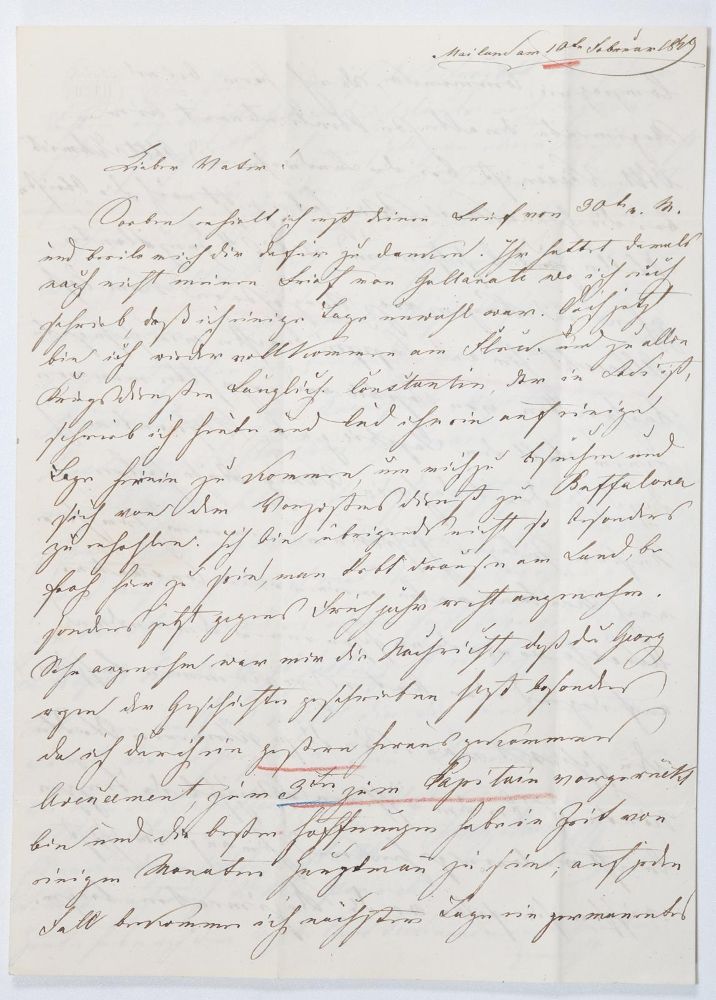 Mailand am 10ten Februar 1849
Lieber Vater!
Soeben erhielt ich erst deinen Brief vom 30ten v. M.
und beeile mich dir dafür zu danken. Ihr hattet damals
noch nicht meinen Brief von Gallarate wo ich euch
schrieb, daß ich einige Tage unwohl war. Doch jetzt
bin ich wieder vollkommen am Fleck und zu allen
Kriegsdiensten tauglich. Constantin, der in ist,
schrieb ich heute und lud ihn ein auf einige
Tage herein zu kommen, um mich zu besuchen und
sich von dem Vorpostendienst zu Buffalora
zu erhohlen. Ich bin übrigends nicht so besonders
froh hier zu sein, man lebt draußen am Land, be
sonders jetzt gegens Frühjahr recht angenehm.
Sehr angenehm war mir die Nachricht, daß du Georg
wegen der Geschichte geschrieben hast besonders
da ich durch ein gestern herausgekommenes
Avencement, zum 3ten zum Kapitain vorgerückt
bin und die besten Hoffnungen habe in Zeit von
einigen Monaten Hauptmann zu sein; auf jeden
Fall bekomme ich nächster Tage ein permanentes